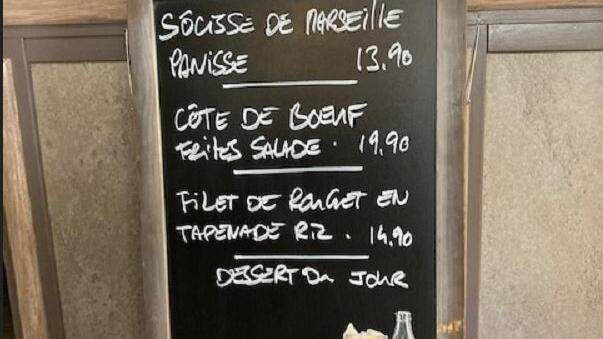 SÔCISSE DE MARSEILLE
PANISSE 13.90
CÔTE DE BOEUF
FRITES SALADE . 19.90
FILET DE ROUGET EN
TAPENADE RIZ . 14.90
DESSERT DU JOUR